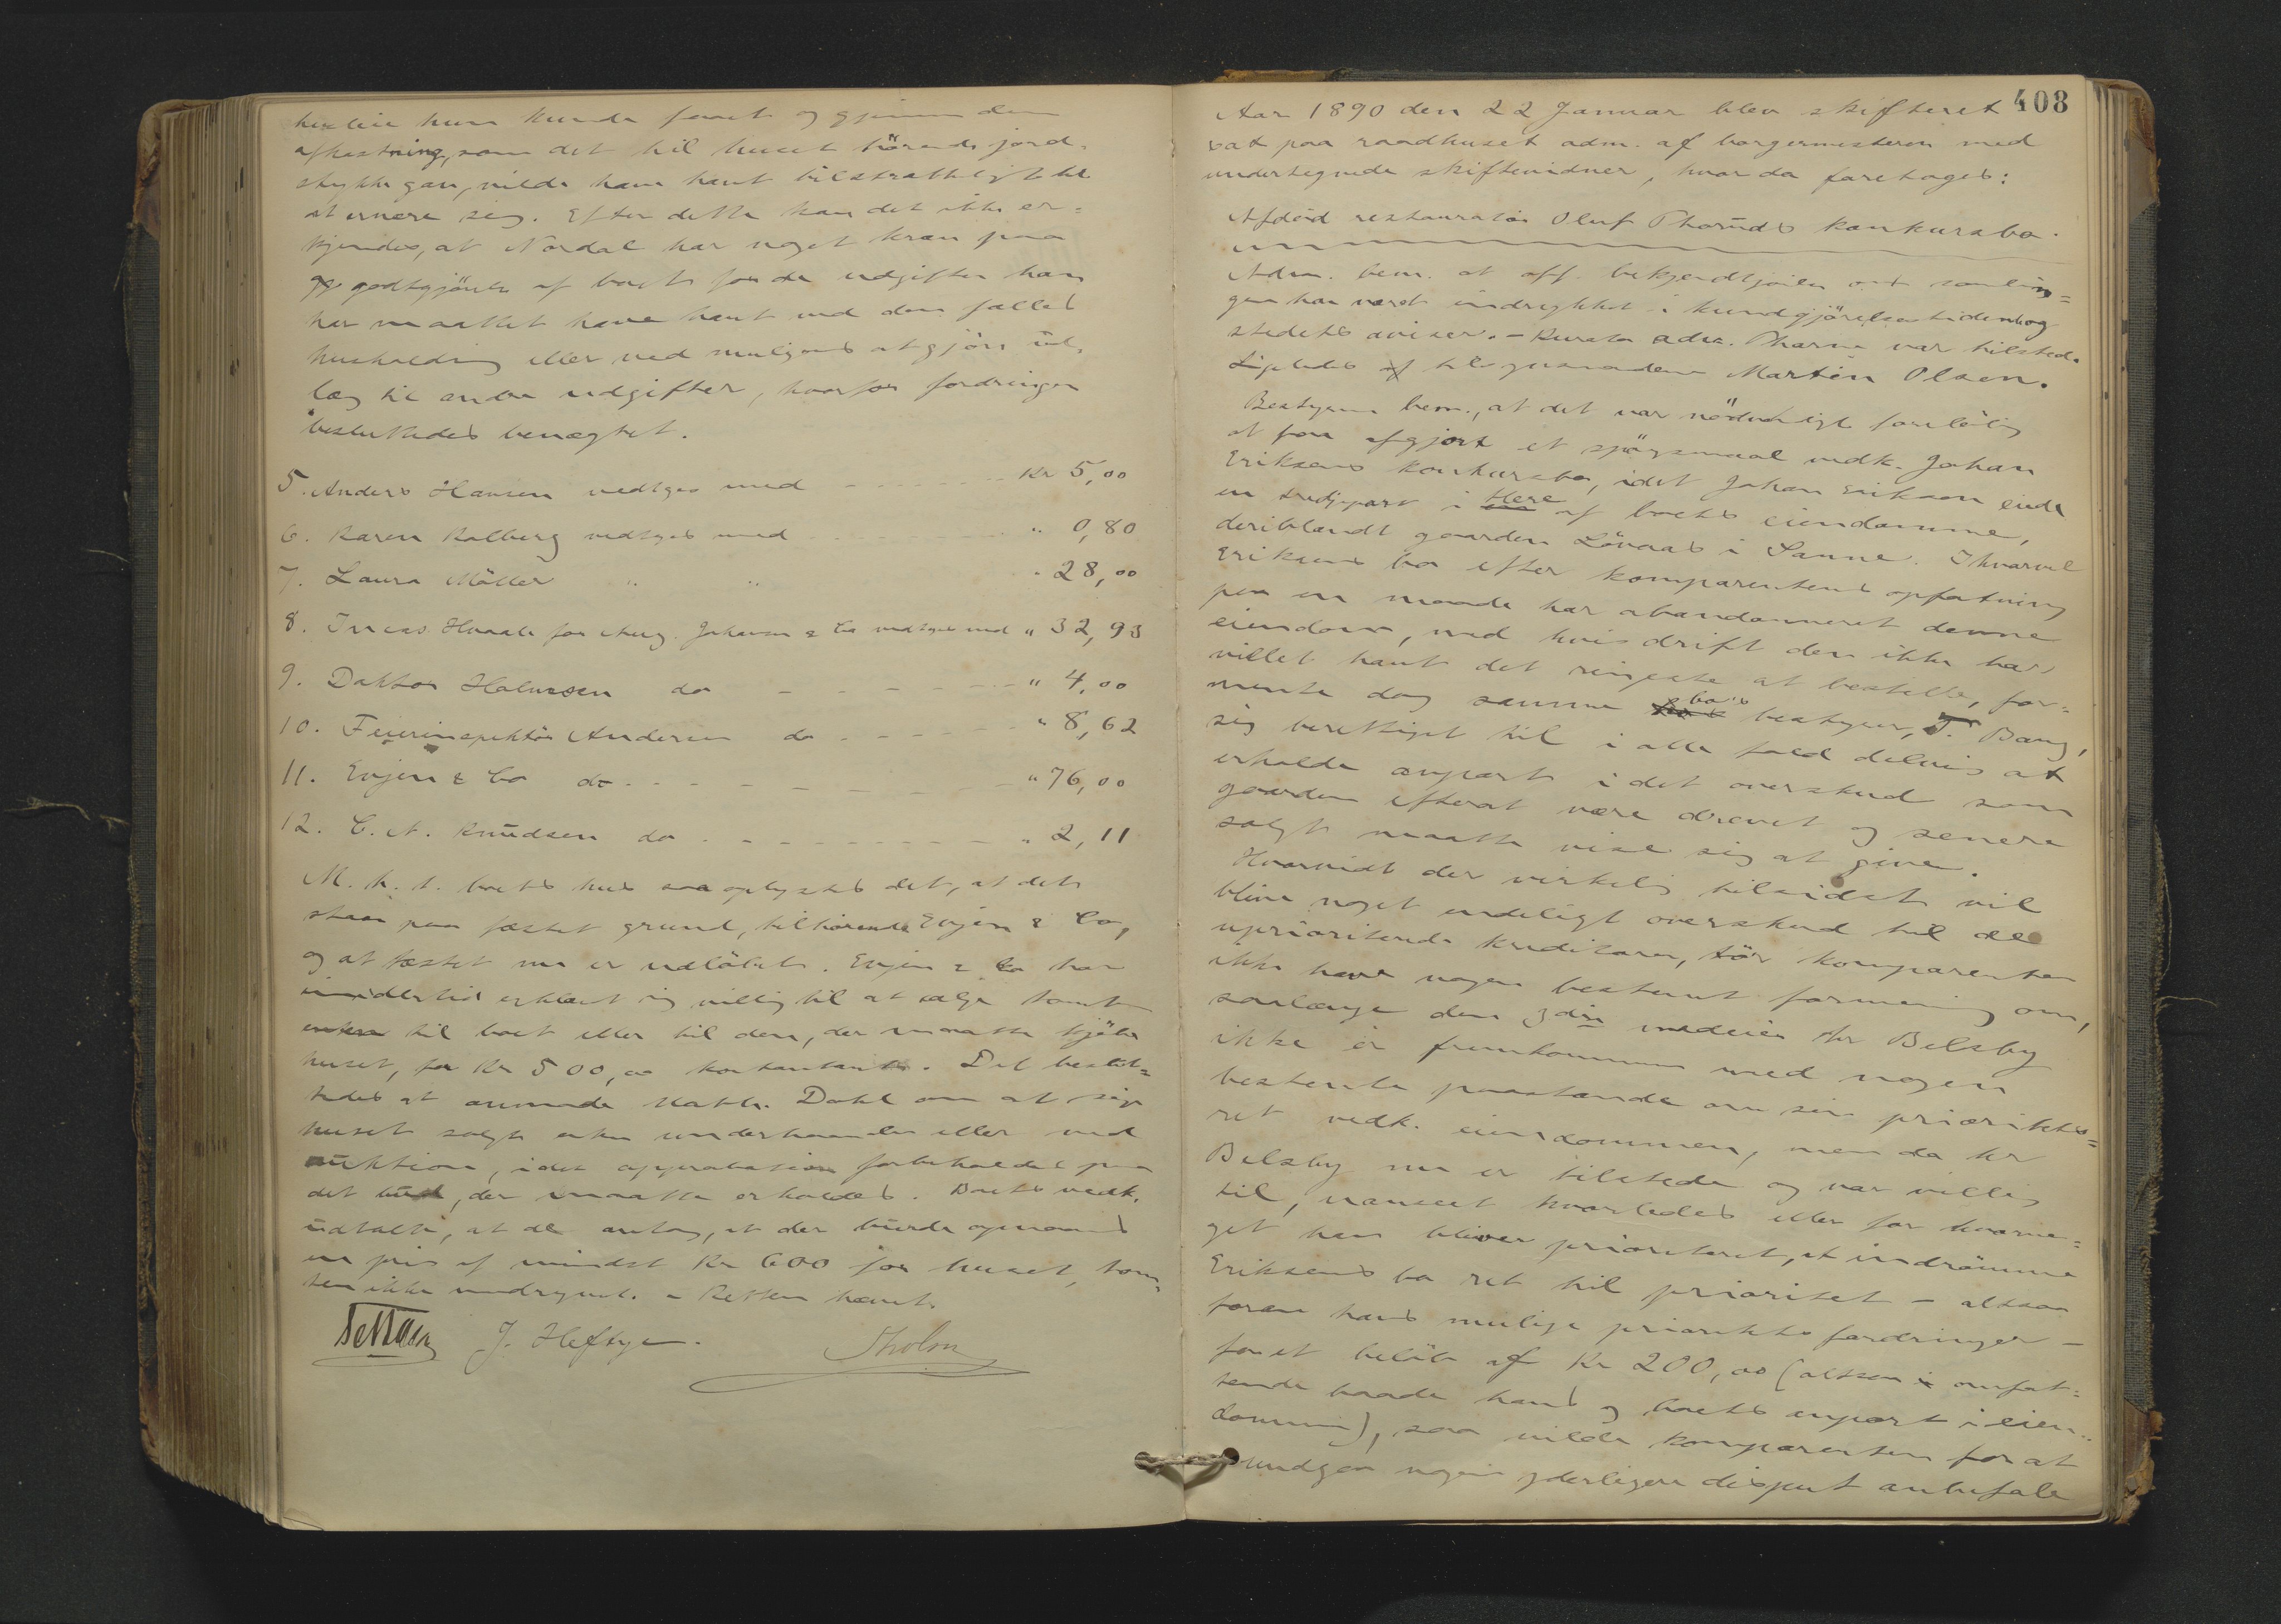 husleie hun kunde faaet og gjennem den
afkastning, som det til huset hörende jord-
stykke gav, vilde have havt tilstrækkeligt til
at ernære sig. Efter dette kan det ikke er=
kjendes, at Nordal har noget krav paa
godtgjörelse af boet for de udgifter han
har maattet have havt ved den fælles
husholdning eller ved muligens at gjöre ud-
læg til andre udgifter, hvorfor fordringen
besluttedes benægtet.
5. Anders Hansen vedtges med Kr 5,00
6. Karen Kalberg vedtges med " 0,80
7. Laura Möller " " " 28,00
8. Incas. Hvaale for Aug. Johansen & Co vedtges med " 32,93
9. Doktor Halvorsen do " 4,00
10. Feierinspektör Andersen do " 8,62
11. Evjen & Co do " 76,00
12. C. A. Knudsen do " 2,11
M. h. t. boets hus saa oplystes det, at det
staar paa fæstet grund, tilhörende Evjen & Co,
og at fæstet nu er udlöbet. Evjen & Co har
imidlertid erklæret sig villig til at sælge tomten
enten til boet eller til den, der maatte kjöbe
huset, for Kr 500,00 kontant. Det beslut=
tedes at anmode Dahl om at söge
huset solgt enten underhaanden eller ved
auktion, idet approbation forbeholdes paa
det bud, der maatte erholdes. Boets vedk.
udtalte, at de antog, at der burde opnaaes
en pris af mindst Kr 600 for huset, tom-
ten ikke indregnet. - Retten hævet.
J. Heftye. Sholm
408
Aar 1890 den 22 Januar blev skifteret
sat paa raadhuset adm. af borgermesteren med
undertegnede skiftevidner, hvor da foretoges:
Afdöd restauratör Oluf Tharuds konkursbo.
Adm. bem. at off. bekjendtgjörelse om samlin=
gen har været indrykket i kundgjörelsestidende og
stedets aviser. - Kurator adv. Tharum var tilstede
Ligeledes tilsynsmanden Martin Olsen.
Bestyreren bem., at det var nödvendigt foreløbig
at faa afgjort et spörgsmaal vedk. Johan
Eriksens konkursbo, idet Johan Eriksen eiede
en tredjepart i flere af boets eiendomme,
deriblandt gaarden Lövaas i Sanne. Ihvorvel
Eriksens bo efter komparentens opfatning
paa en maade har abandonneret denne
eiendom, med hvis drift den ikke har
villet havt det ringeste at bestille, for=
mente dog samme bo's bestyrer, T. Bang,
sig berettiget til i alle fald delvis at
erholde anpart i det overskud som
gaarden efterat være drevet og senere
solgt maatte vise sig at give.
Hvorvidt der virkelig tilsidst vil
blive noget endeligt overskud til de
uprioriterede kreditorer, tör komparenten
ikke have nogen bestemt formening om,
saalænge den 3die medeier hr Belsby
ikke er fremkommen med nogen
bestemte paastande om sin prioritets=
ret vedk. eiendommen, men da hr
Belsby nu er tilstede og var villig
til, uanseet hvorledes eller for hvorme=
get han bliver prioriteret, at indrömme
Eriksens bo ret til prioritet - altsaa
foran hans mulige prioritets fordringer -
for et belöb af Kr 200,00 (altsaa omfat=
tende baade hans og boets anpart i eien-
dommen), saa vilde komparenten for at
undgaa nogen yderligere disput anbefale